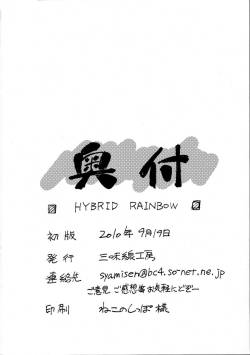 奥付
HYBRID RAINBOW
初版 2010年9月19日
発行 三味紙工房
連絡先 syamisen@bc4.so-net.ne.jp
ご意見 ご感想お気軽にどぞー
印刷 ねこのしっぽ様